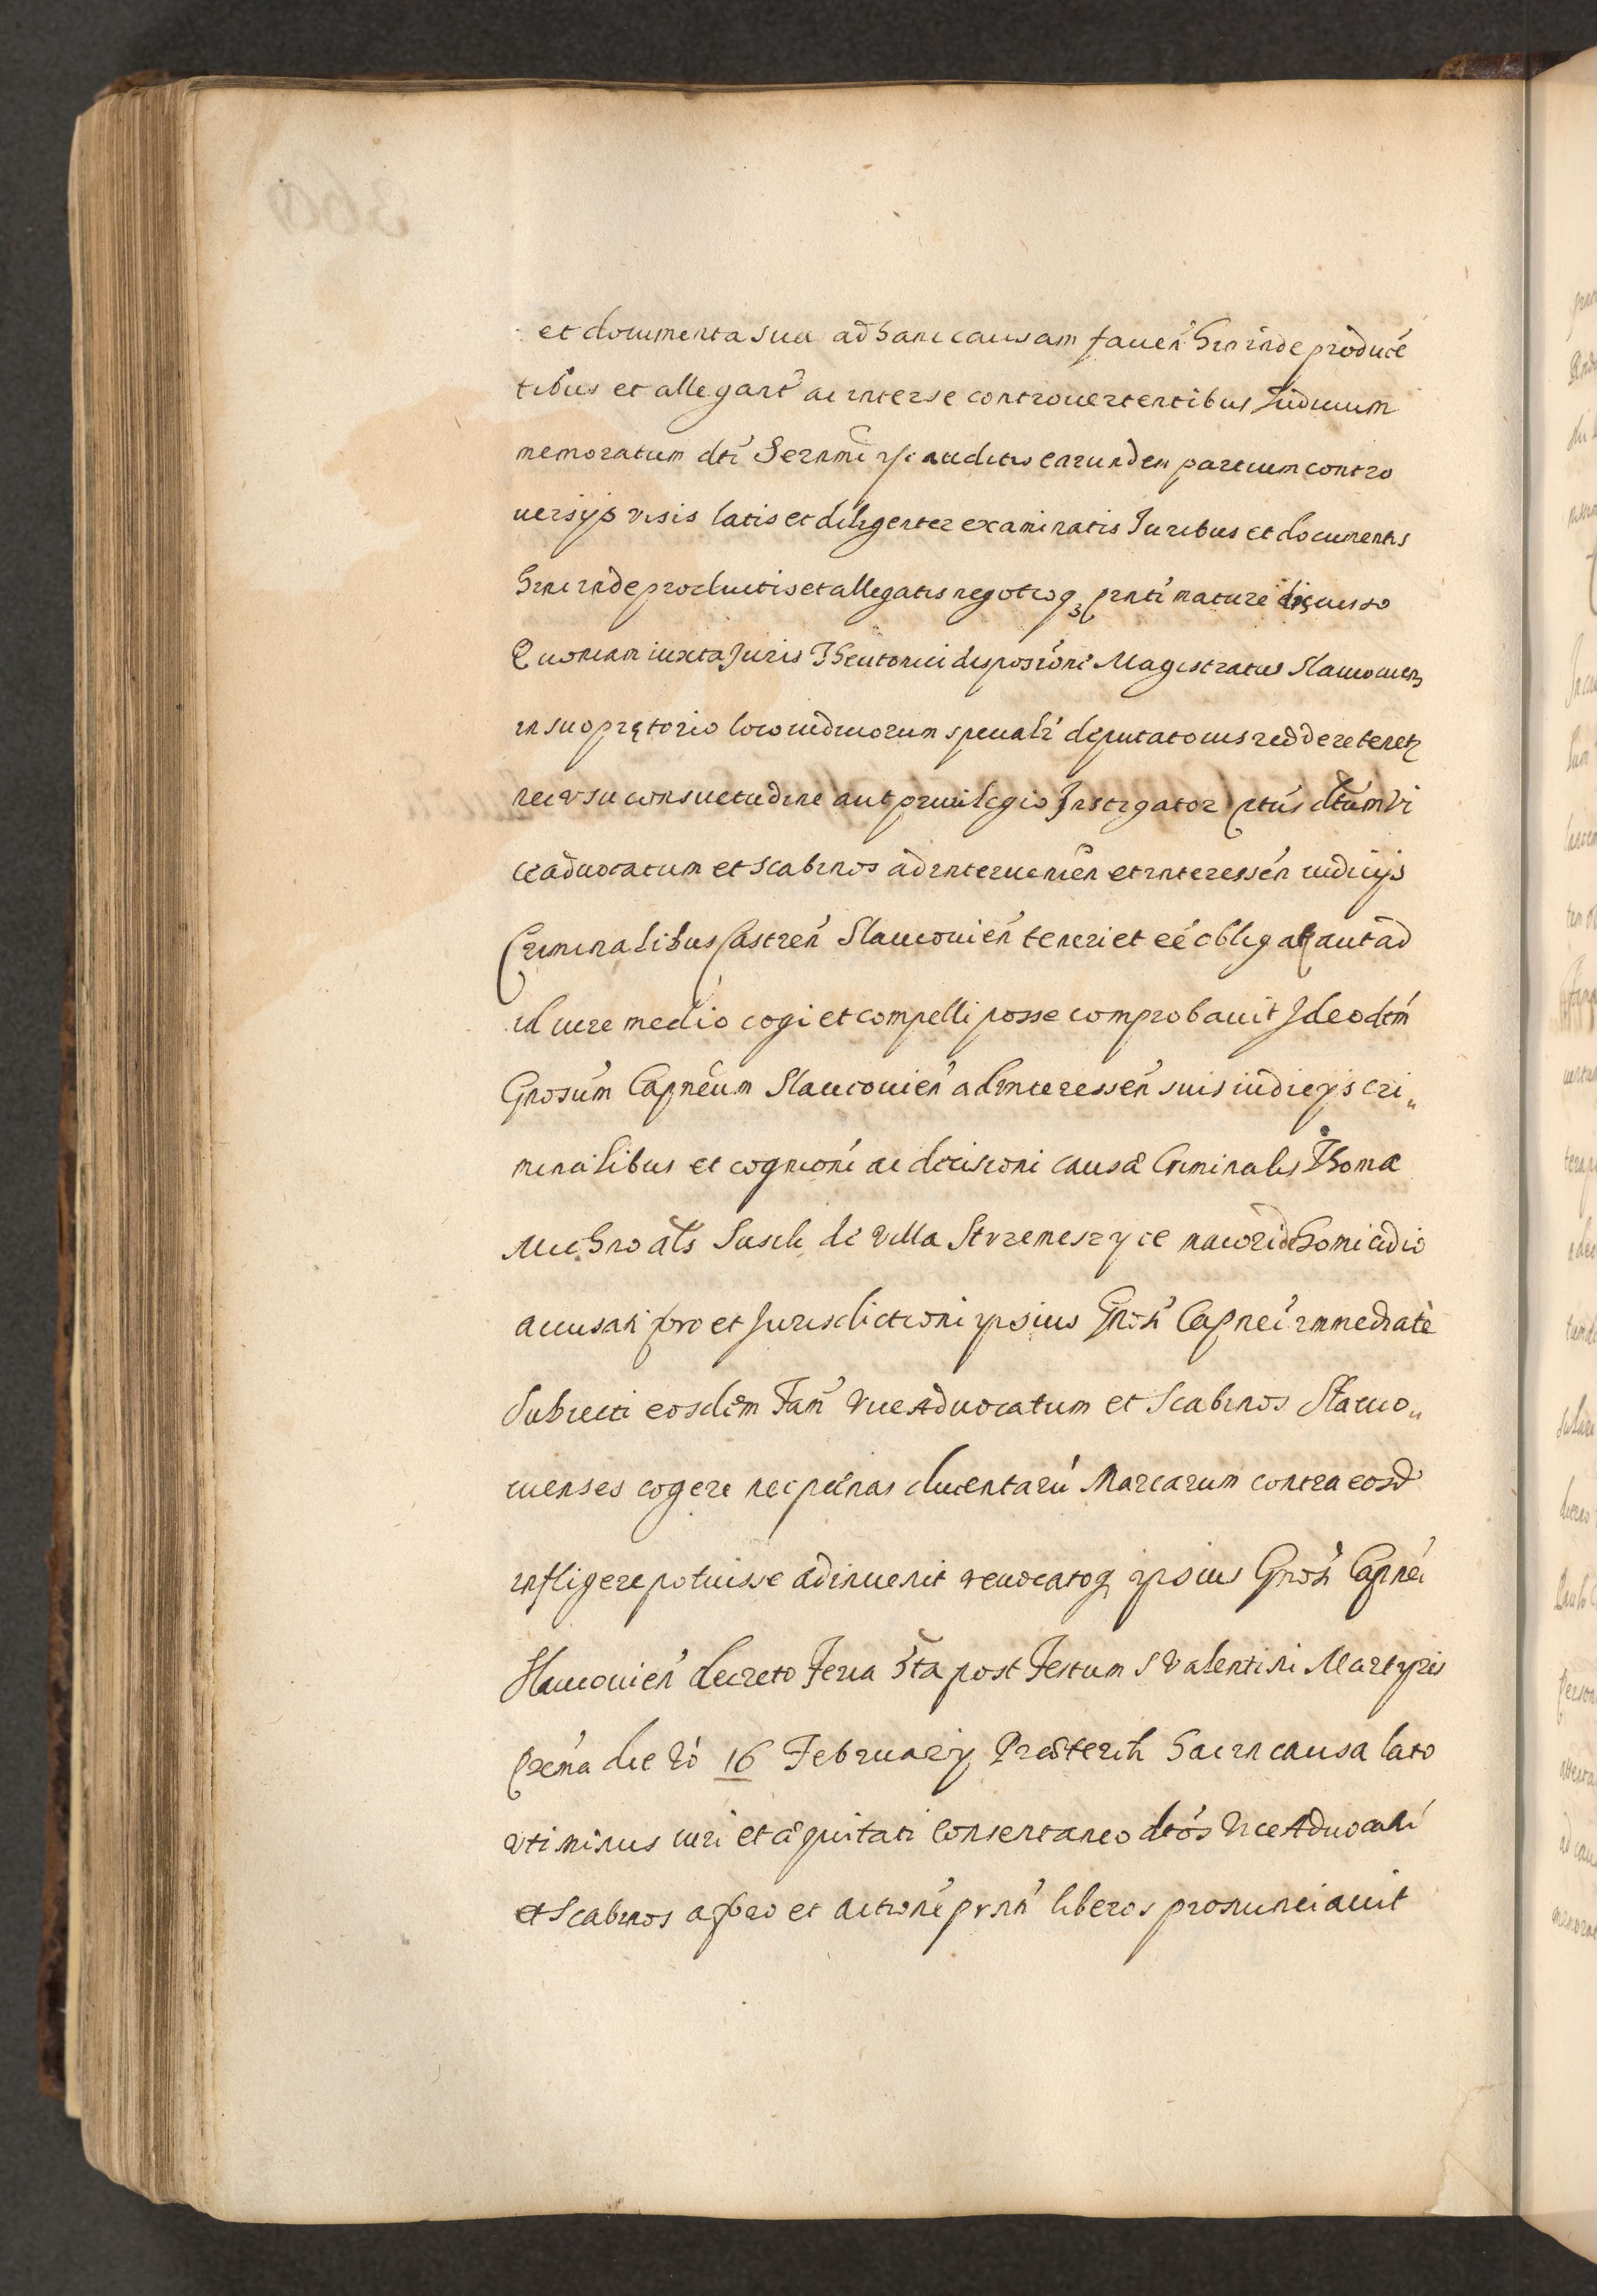 et documenta sua ad hanc causam faven̄ hinc inde producē
tibus et allegant̄ ac inter se controuertentibus Judicium
memoratum dti Sernmi auditis earunden partium contro
uersijs visis latis et diligenter examinatis Juribus et documentis
hinc inde productis et allegatis negotioq₃ pnti mature discusso
Quoniam iuxta Juris Theutonici disposioni Magistratus Slawcouien
in suo prętorio loco iudiciorum speciali deputato ius reddere tenet
nec vsu consuetudine aut priuilegio Instigator dtum vi
ceaduocatum et scabinos ad interuenien et interessen iudicijs
Criminalibus Castren Slawcouien teneri et eē obligat aut ad
id iure medio cogi et compelli posse comprobauit Ideo dtm
Gnosum Capneum Slawcouien ad interessen suis iudicijs cri„
minalibus et cognioni ac decisioni causæ Criminalis Thomæ
Michno als Susek de Villa Strzemeszyce maiori de homicidio
accusati foro et Jurisdictioni ipsius Gnosi Capnei immediatè
Subiecti eosdem Fam ViceAduocatum et Scabinos Slawco„
uienses cogere nec pænas ducentarū Marcarum contra eosd
infligere potuisse adinuenit reuocatoq ipsius Gnosi Capnei
Slawcouien decreto Feria 5ta post Festum S Valentini Martyris
die 16 February Præteriti hac in causa lato
vti minus iuri et æquitati consentaneo dtos ViceAduocati
et Scabinos a foro et actione pnti liberos pronunciauit